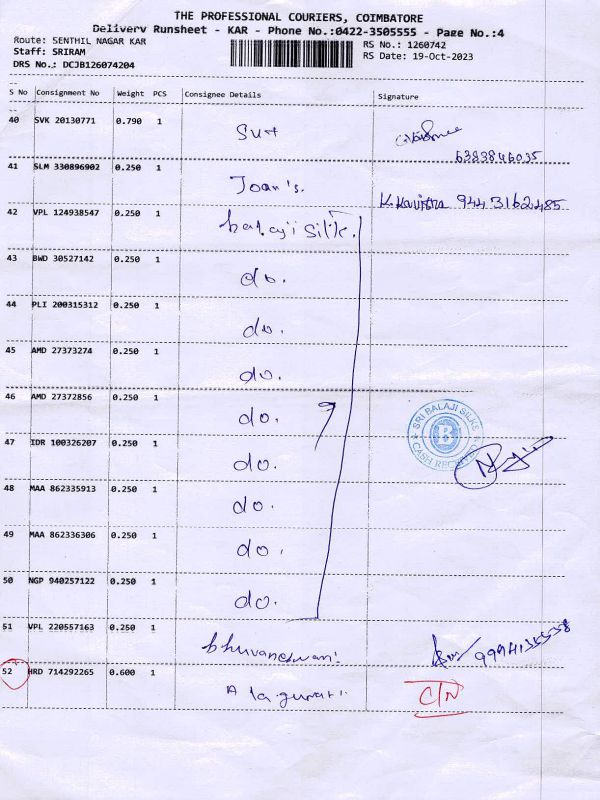 THE PROFESSIONAL COURIERS, COIMBATORE
Delivery Runsheet - KAR - Phone No.:0422-3505555 - Page No.:4
Route: SENTHIL NAGAR KAR
RS No.: 1260742
Staff: SRIRAM
RS Date: 19-Oct-2023
DRS No.: DCJB126074204
S No Consignment No Weight PCS Consignee Details Signature
40 SVK 20130771 0.790 1
6383846035
41 SLM 330896902 0.250 1 Joan's. K.Kavitha 9443162485
42 VPL 124938547 0.250 1 balaji Silk.
43 BWD 30527142 0.250 1 do.
44 PLI 200315312 0.250 1 do.
45 AMD 27373274 0.250 1 do.
46 AMD 27372856 0.250 1 do. 9
SRI BALAJI SILKS
B
CASH RECEIVED
47 IDR 100326207 0.250 1 do.
48 MAA 862335913 0.250 1 do.
49 MAA 862336306 0.250 1 do.
50 NGP 940257122 0.250 1 do.
51 VPL 220557163 0.250 1 bhuvaneshwari
52 HRD 714292265 0.600 1 C/N